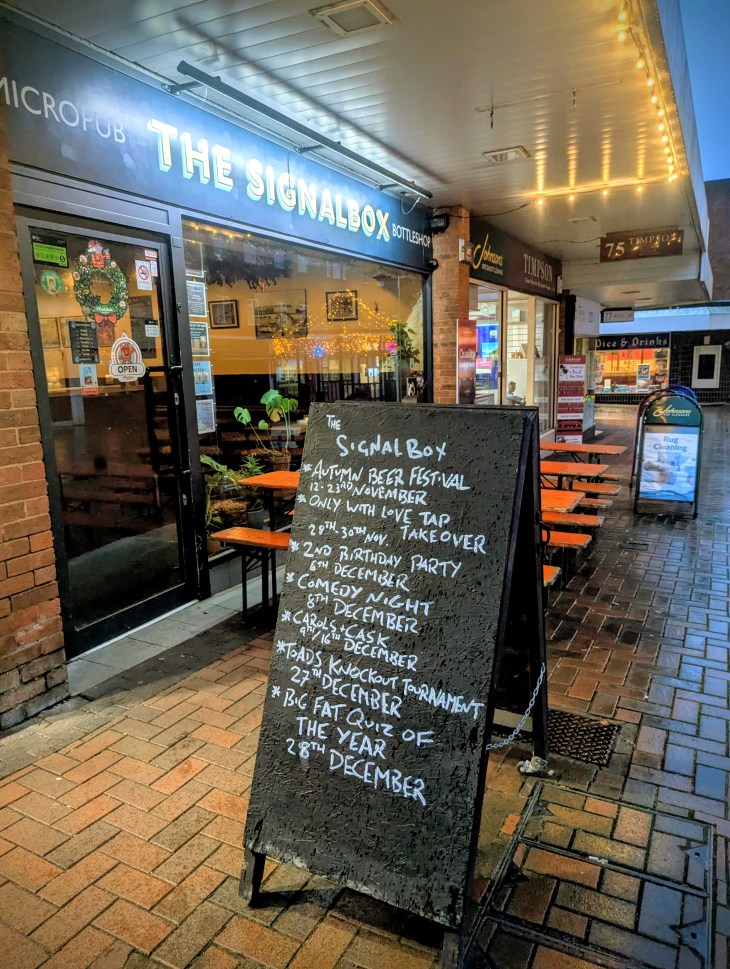 MICROPUB
THE SIGNALBOX
BOTTLESHOP
Johnsons
TIMPSON
75 TIMPSON
Dice & Drinks
OPEN
Johnsons
Rug
Cleaning
THE
SIGNALBOX
* AUTUMN BEER FESTIVAL
12-23RD NOVEMBER
* ONLY WITH LOVE TAP
TAKEOVER
28TH-30TH NOV.
* 2ND BIRTHDAY PARTY
6TH DECEMBER
* COMEDY NIGHT
8TH DECEMBER
* CAROLS + CASK
9TH/16TH DECEMBER
* TOADS KNOCKOUT TOURNAMENT
27TH DECEMBER
* BIG FAT QUIZ OF
THE YEAR
28TH DECEMBER